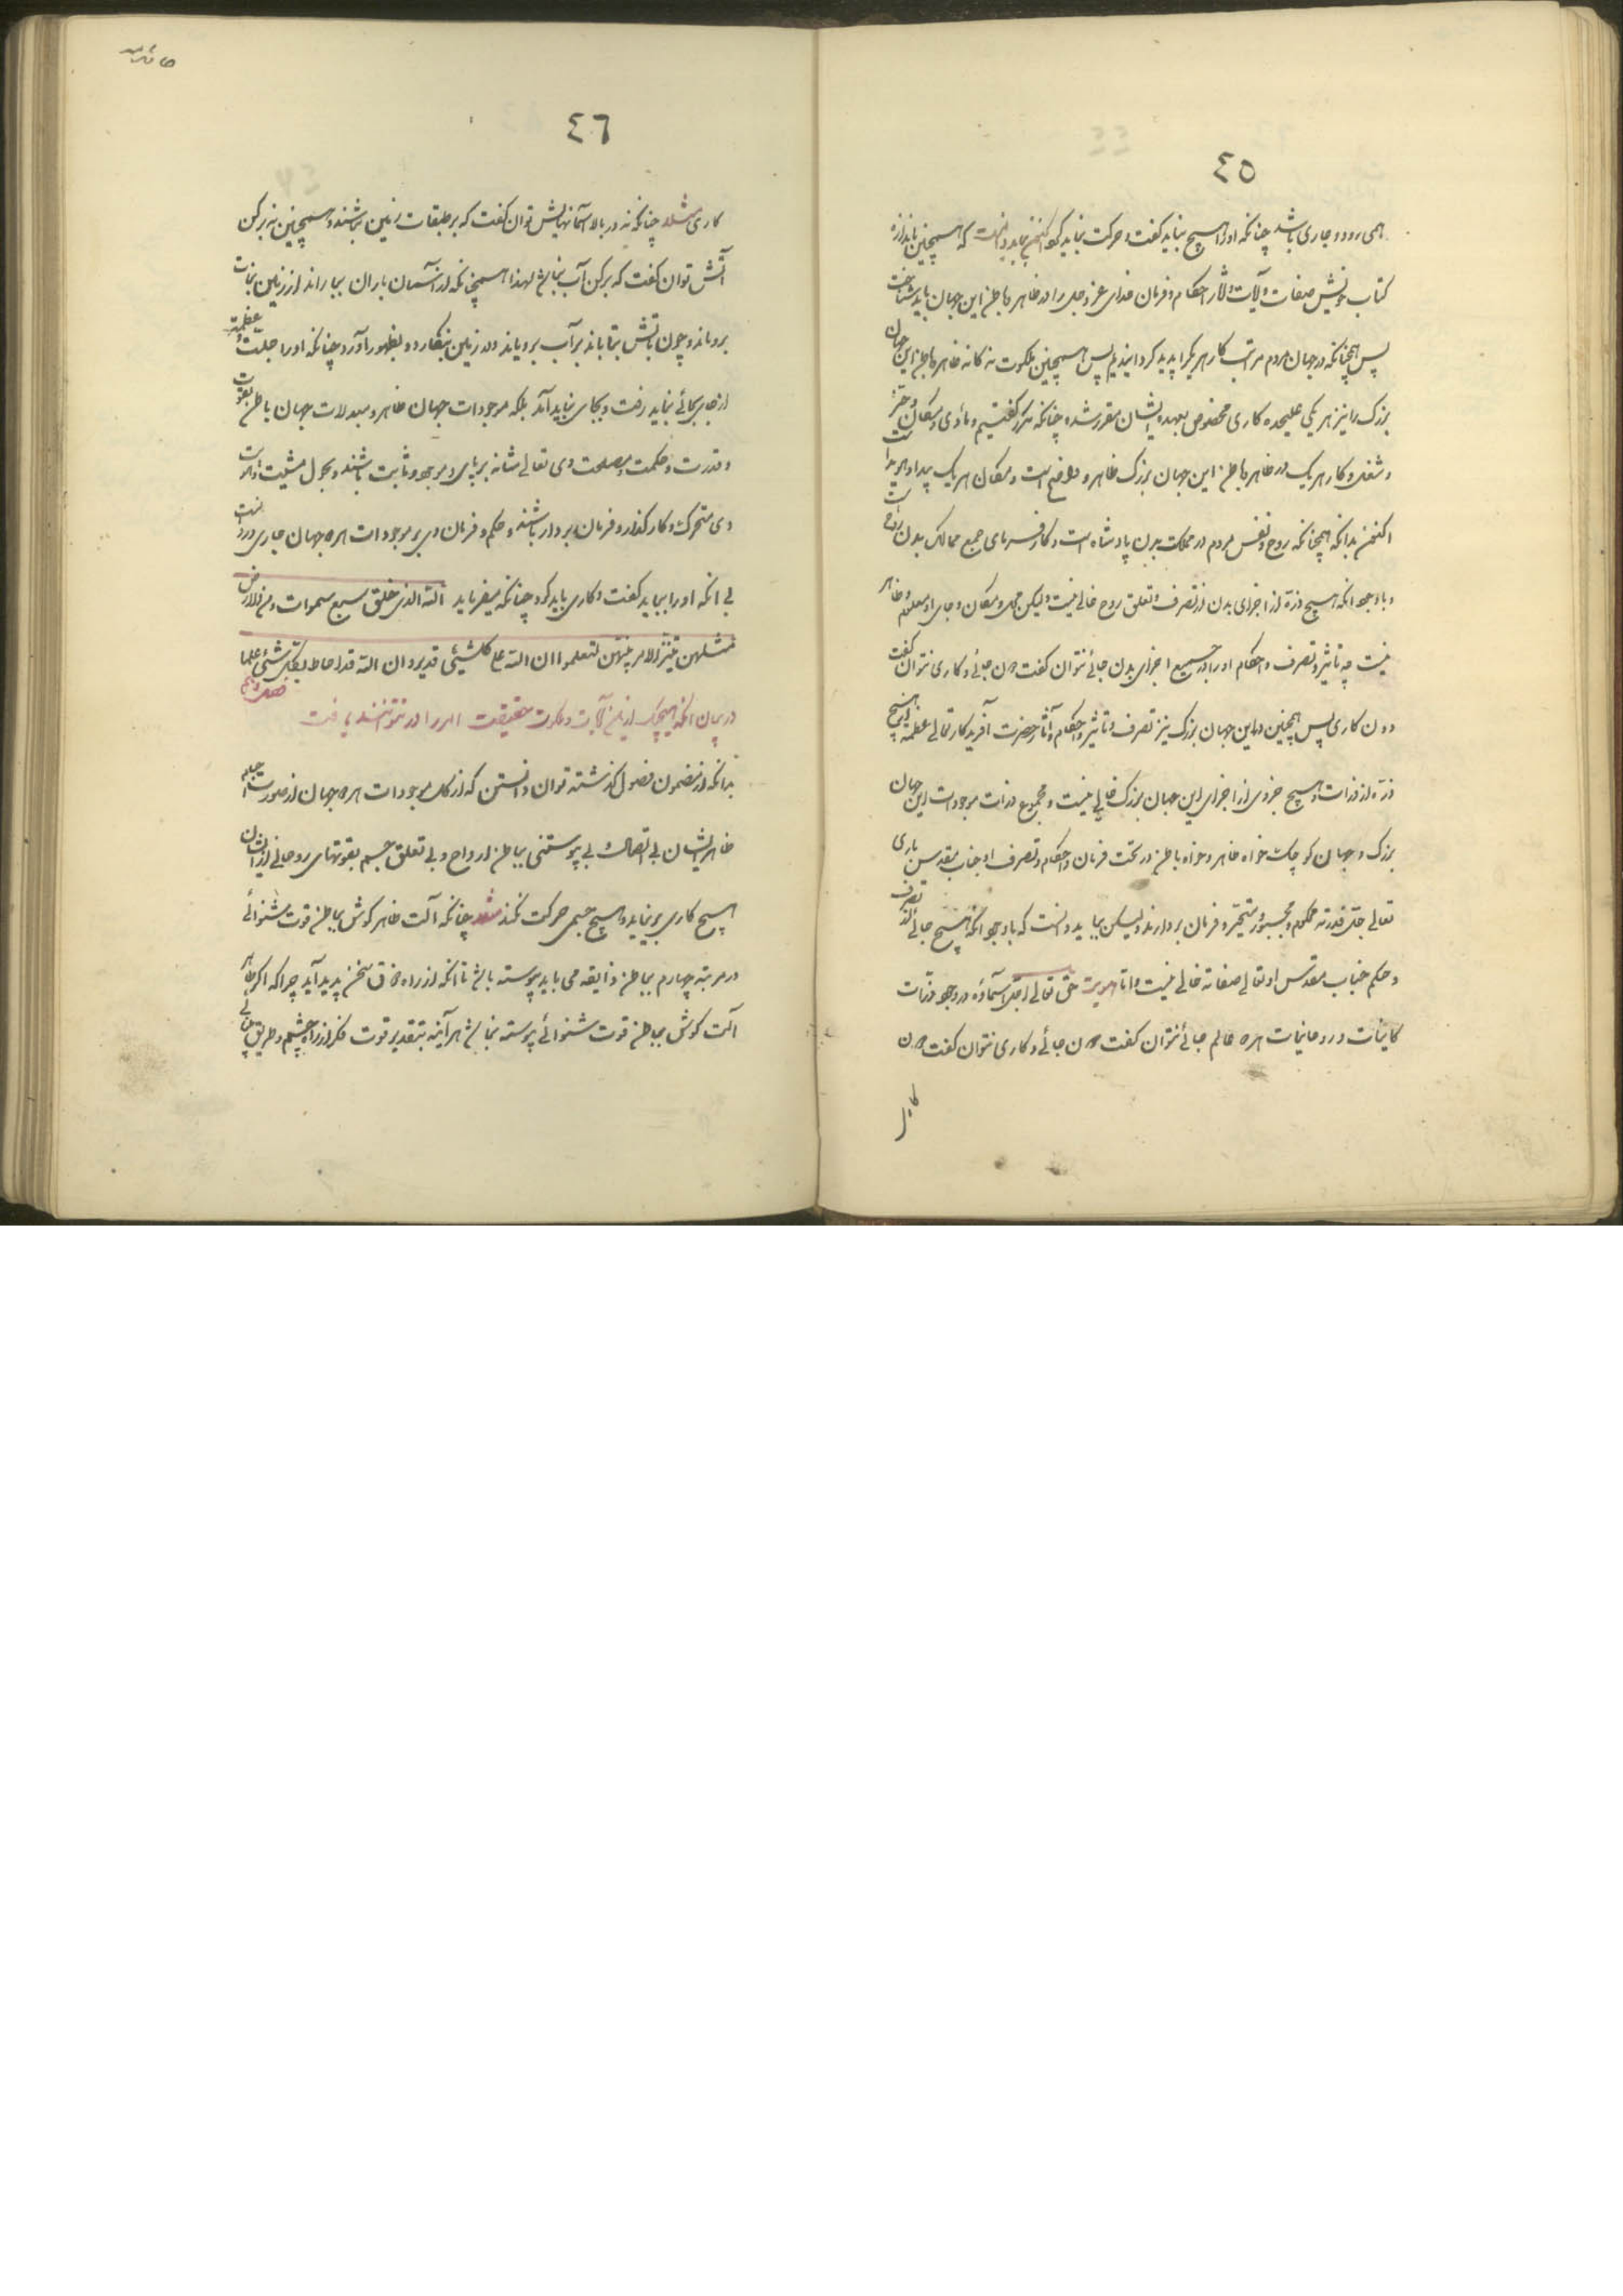 ٤٥
همی رود و جاری باشد چنانکه او را هیچ نباید گفت و حرکت نباید که همچنین باندازه
کتاب خویش صفات و آلات و آثار احکام و فرمان خدای عز و جل را در ظاهر و باطن این جهان باید شناخت
پس همچنانکه در جهان مردم مراتب کار هر یکرا پدید گردانیدیم پس همچنین ملکوت نه کانه ظاهر و باطن این جهان
بزرک را نیز هر یکی علیحده کاری مخصوص بعهده ایشان مقرر شده چنانکه ذکر گفتیم و مأوی و مکان و حیّز
و شغل و کار هر یک در ظاهر و باطن این جهان بزرک ظاهر و واضح است و مکان هر یک پیدا و هویدا است
اکنون بدانکه همچنانکه روح و نفس مردم در مملکت بدن پادشاه است و کارفرمای جمیع ممالک بدن
و باوجود انکه هیچ ذرّه از اجزای بدن از تصرف و تعلق روح خالی نیست ولیکن محل و مکان و جای او معلوم و ظاهر
نیست چه تاثیر و تصرف و احکام او را در جمیع اجزای بدن جائی نتوان گفت دون جائی و کاری نتوان گفت
دون کاری پس همچنین در این جهان بزرک نیز تصرف و تاثیر و احکام و آثار حضرت آفریدکار تعالی عظمه از هیچ
ذرّه از ذرات و هیچ جزوی از اجزای این جهان بزرک خالی نیست و مجموع ذرات موجودات این جهان
بزرک و جهان کوچک خواه ظاهر و خواه باطن در تحت فرمان و احکام و تصرف او جناب مقدس باری
تعالی جلّ قدرته محکوم و مجبور و متحیّر و فرمان بردارند ولیکن بباید دانست که باوجود انکه هیچ جائی از تصرف
و حکم جناب مقدس او تعالی صفاته خالی نیست و اما هویت حق تعالی اجلّ اسماؤه در وجود ذرات
کاینات و روحانیات هر ده عالم جائی نتوان گفت دون جائی و کاری نتوان گفت دون
کاری
٤٦
کاری مثلا چنانکه نه در بالا آسمانهایش توان گفت که بر طبقات زمین نباشند و همچنین نه برکن
آتش توان گفت که برکن آب نباشد لهذا همچنانکه از آسمان باران بباراند از زمین نبات
برویاند و چون باتش بتاباند بر آب برویاند و در زمین بنکارد و بظهور آورد چنانکه او را جلت عظمته
از جای بجائی نباید رفت و بجای نباید آمد بلکه موجودات جهان ظاهر و مبدلات جهان باطن بقوت
و قدرت و حکمت و مصلحت وی تعالی شانه برپای و موجود و ثابت باشند و بحول مشیت و ارادت
وی متحرک و کارکذار و فرمان بردار باشند و حکم و فرمان وی بر موجودات هر ده جهان جاری و روانست
بی انکه او را بباید گفت و کاری باید کرد چنانکه میفرماید الله الذی خلق سبع سموات و من الارض
مثلهن یتنزل الامر بینهن لتعلموا ان الله علی کلشیئی قدیر و ان الله قد احاط بکل شئی علما
در بیان انکه هیچیک از این آلات و ملکوت حقیقت امر را در نتوانند یافت
بدانکه از مضمون فصول گذشته توان دانستن که از کل موجودات هر ده جهان از صورت
ظاهر ایشان بی اتصال و بی پیوستنی بباطن ارواح و بی تعلق جسم بقوتهای روحانی از ایشان
هیچ کاری برنیاید و هیچ جسمی حرکت نکند مثلا چنانکه آلت ظاهر کوش بباطن قوت شنوائی
در مرتبه چهارم بباطن ذایقه می باید پیوسته باشد تا انکه از راه ذوق سخن پدید آید چرا که اکر ظاهر
آلت کوش بباطن قوت شنوائی پیوسته نباشد هر آینه بتقدیر قوت فکر از راه چشم و طریق